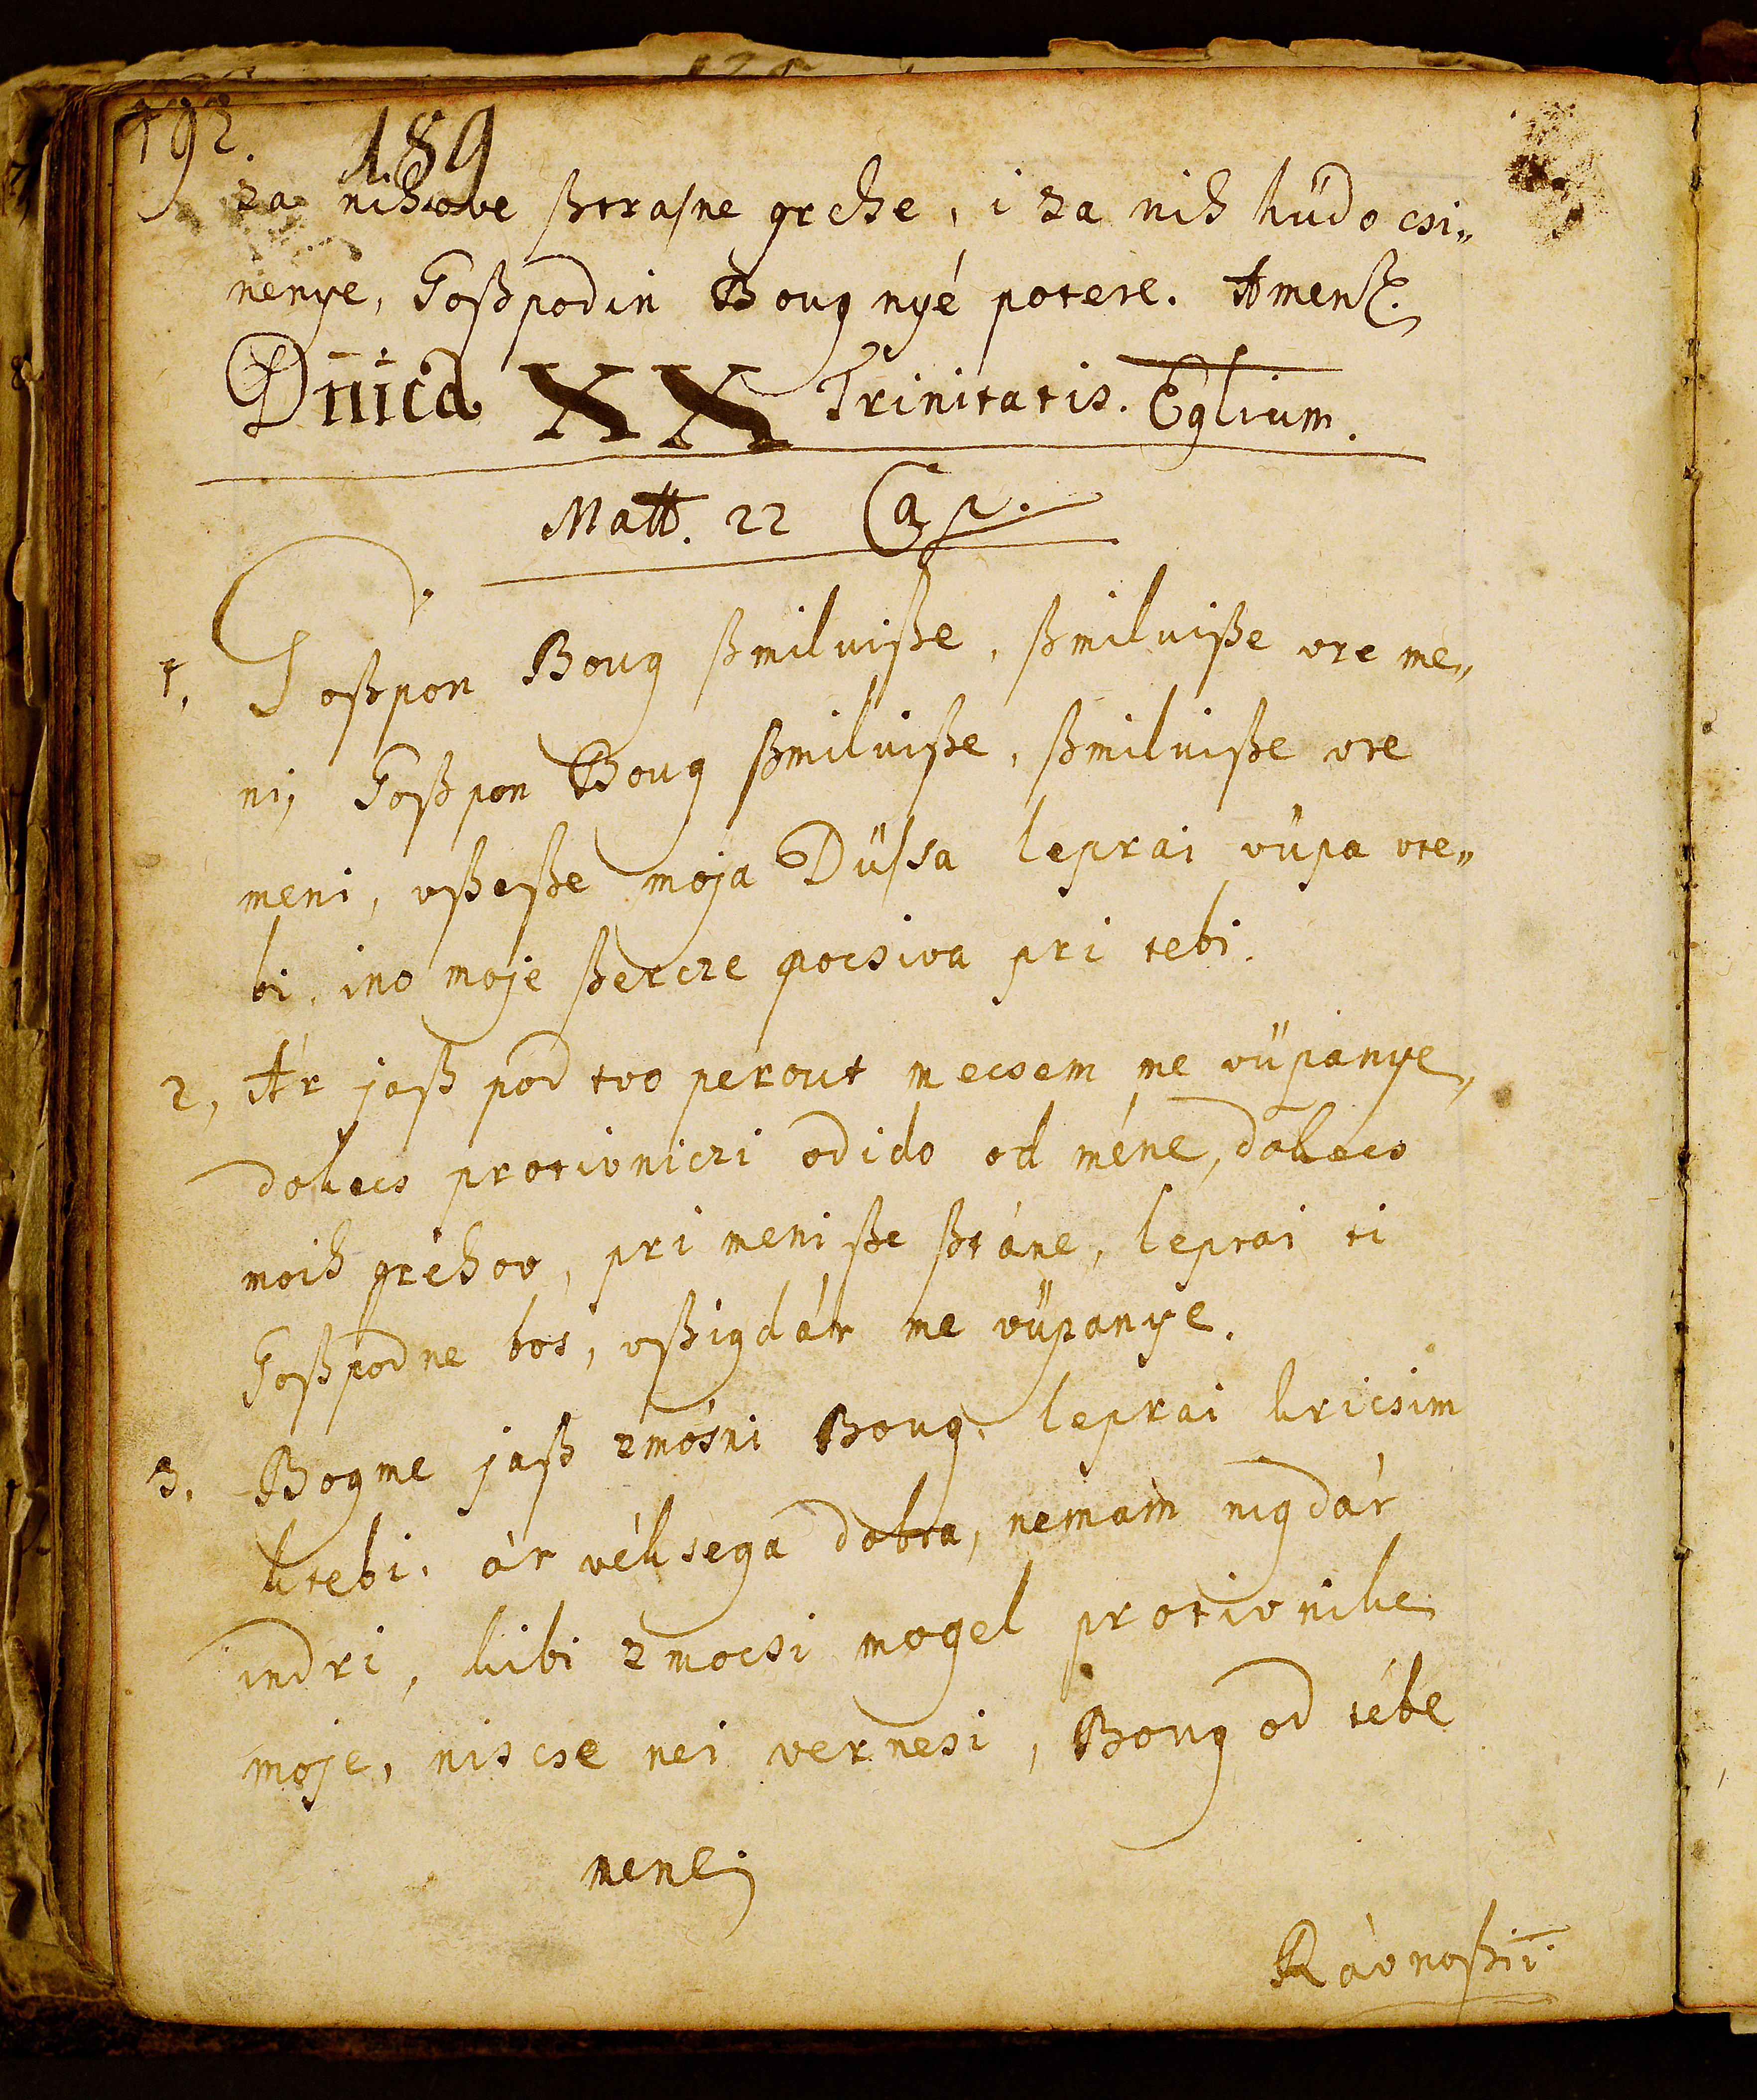 192.
189
za nihove ßtrasne grehe, i za nih hüdo csi„
nenye, Goßpodin Boug nyé potere. Amen.
Dn̄ica XX Trinitatis. Eglium.
Matt. 22 Cap.
1, Goßpon Boug ßmilviße, ßmilviße vre me„
ni, Goßpon Boug ßmilviße, ßmilviße vre
meni, vßeße moja Düssa leprai vüpa vte„
bi, ino moje ßercze pocsiva pri tebi.
2, Ár jaß pod tvo perout mecsem me vüpanye,
dokecs protivniczi odido od méne, dokecs
moih gréhov, pri meni ße ßtáne, leprai ti
Goßpodne bos, vßigdár me vüpanye.
3. Bogme jaß zmósni Boug, leprai kricsim
ktebi, ár véksega dobra, nemam nigdár
indri, kibi zmocsi mogel protivnike
moje, niscse nei vernesi, Boug od tébe
mene,
Rávnoßti